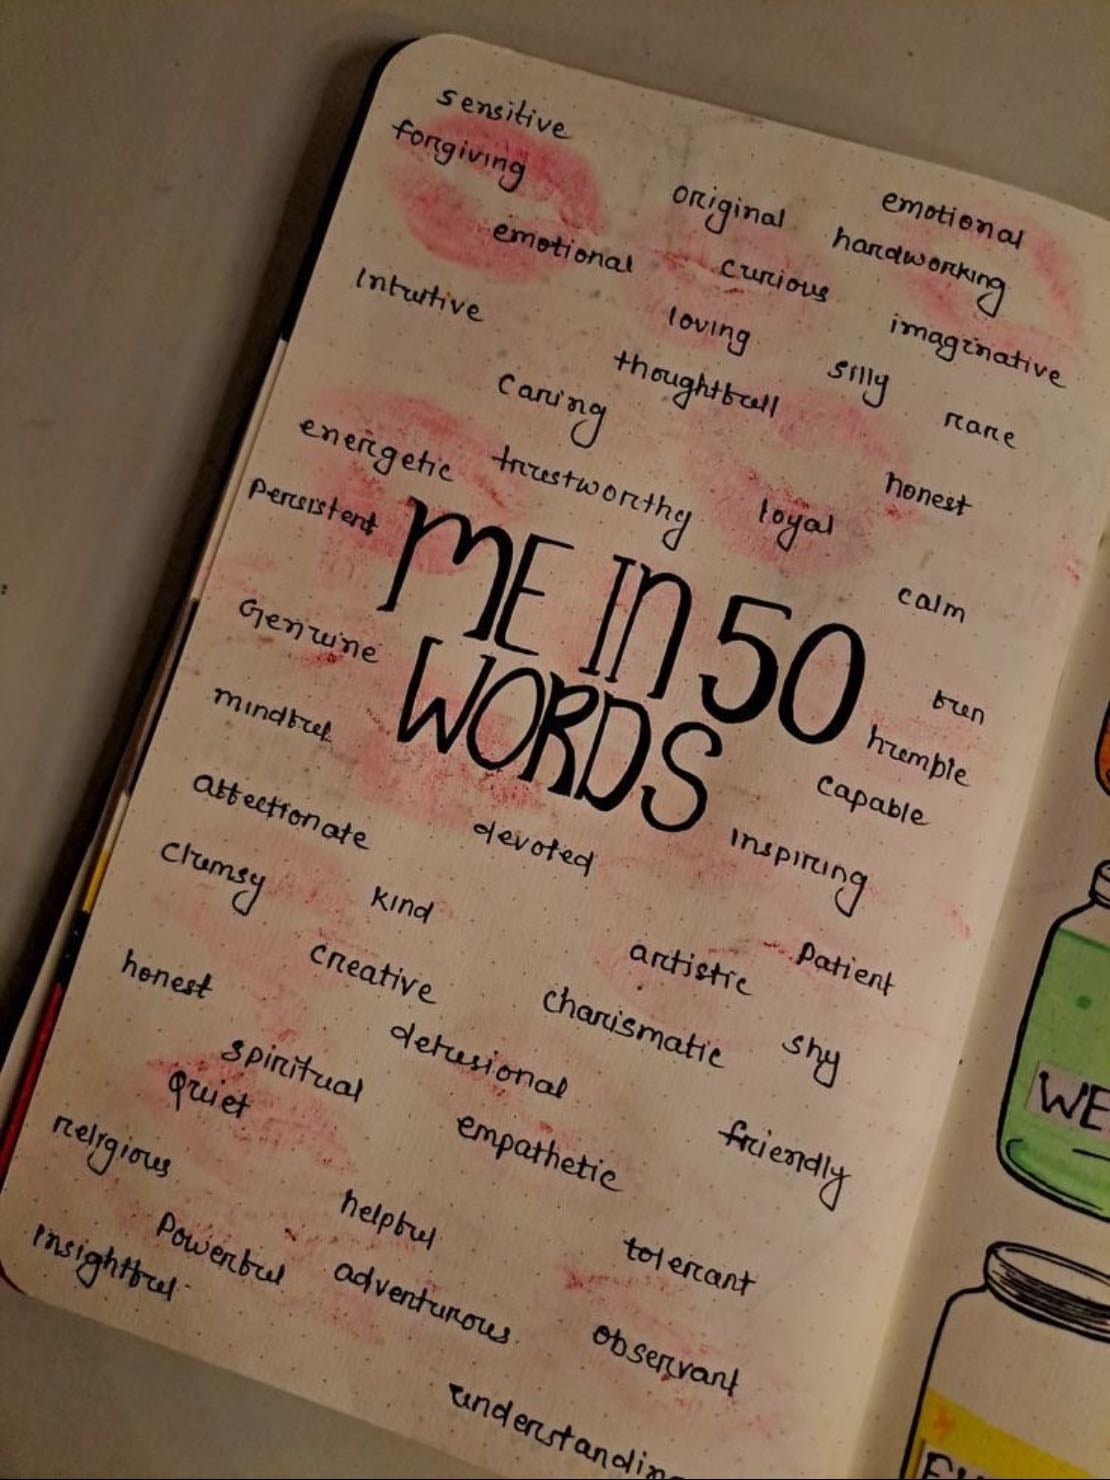 sensitive
forgiving
original
emotional
emotional
curious
hardworking
Intuitive
loving
imaginative
thoughtfull
silly
caring
rare
energetic
trustworthy
loyal
honest
Persistent
ME IN 50
WORDS
calm
Genuine
fun
mindful
humble
capable
affectionate
devoted
inspiring
clumsy
kind
artistic
Patient
honest
creative
charismatic
shy
spiritual
delusional
Quiet
empathetic
friendly
religious
helpful
tolerant
Powerful
adventurous
Insightful
observant
understandin
WE